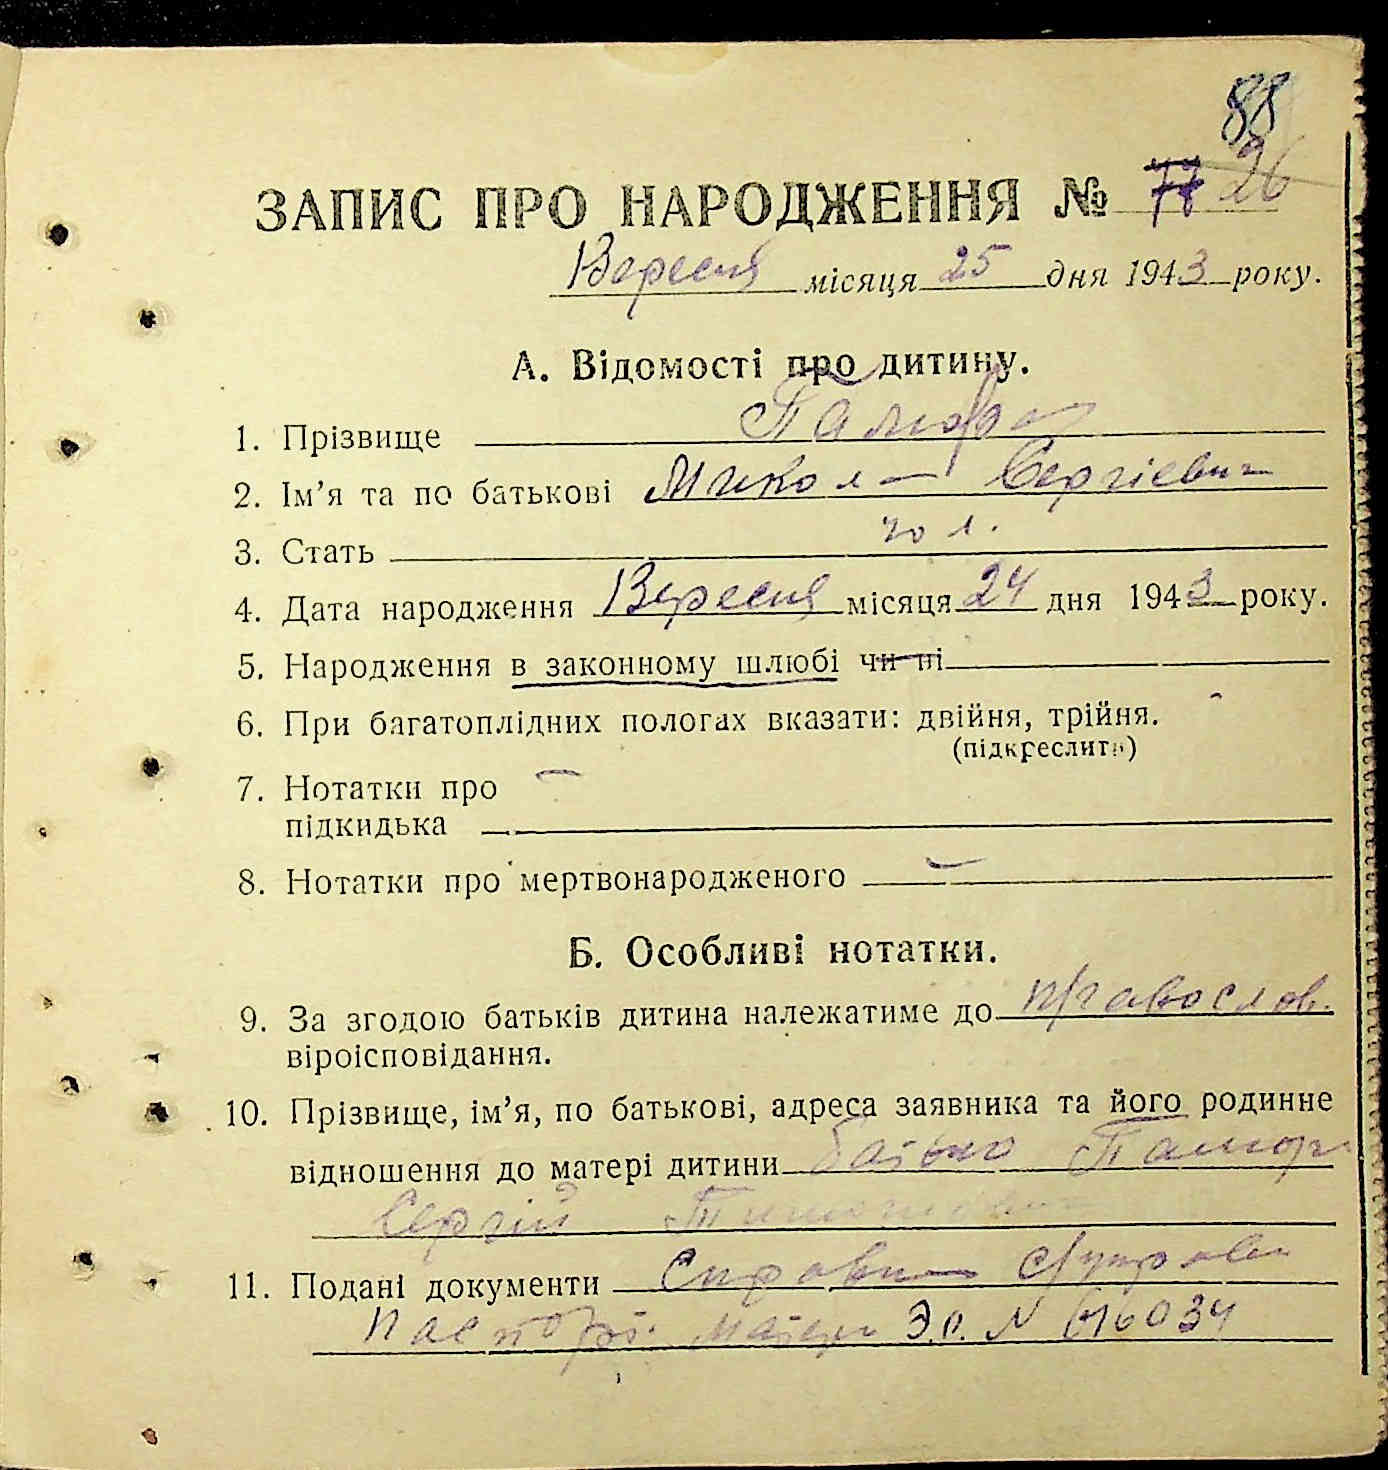 88
ЗАПИС ПРО НАРОДЖЕННЯ № 26
Вересня місяця 25 дня 1943 року.
А. Відомості про дитину.
1. Прізвище
2. Ім’я та по батькові Микола Сергієвич
3. Стать чол.
4. Дата народження Вересня місяця 24 дня 1943 року.
5. Народження в законному шлюбі чи ні
6. При багатоплідних пологах вказати: двійня, трійня.
(підкреслить)
7. Нотатки про
підкидька
8. Нотатки про мертвонародженого
Б. Особливі нотатки.
9. За згодою батьків дитина належатиме до православ.
віроісповідання.
10. Прізвище, ім’я, по батькові, адреса заявника та його родинне
відношення до матері дитини батько
Сергій
11. Подані документи
паспорт матери